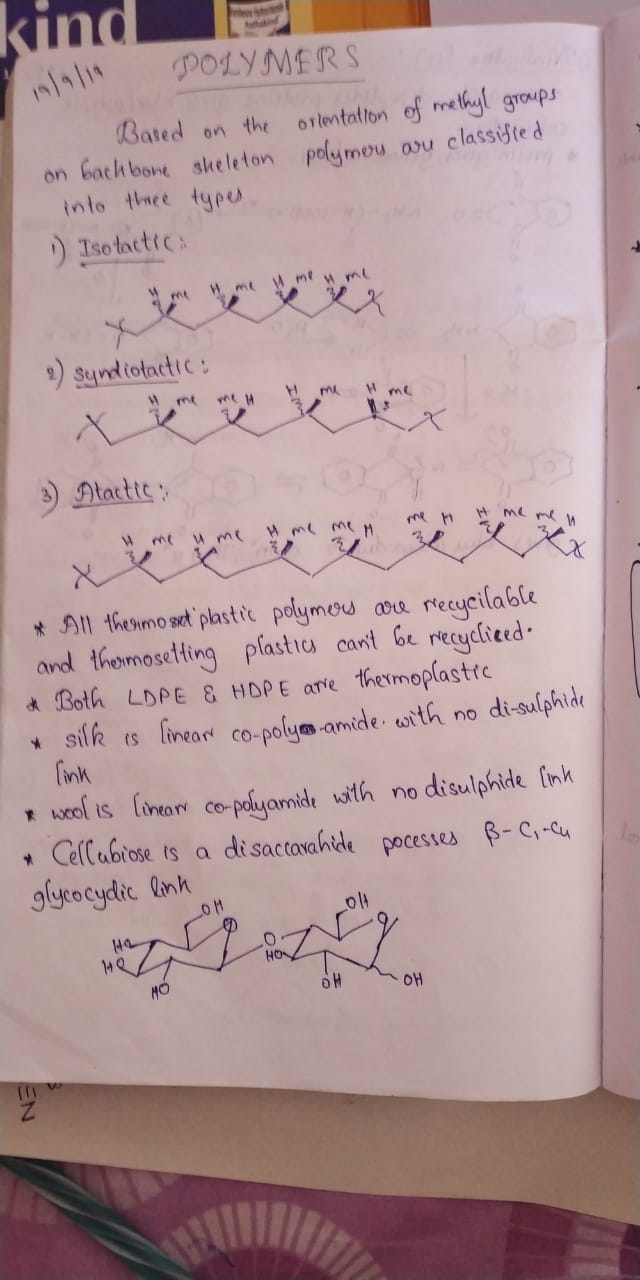 kind
19/9/19
POLYMERS
Based on the orientation of methyl groups
on backbone skeleton polymers are classified
into three types
1) Isotactic:
H me H me H me H me
2) Syndiotactic:
H me me H H me H me
3) Atactic:
H me H me H me me H me H H me me H
* All thermosetplastic polymers are recycilable
and thermosetting plastics can't be recycliced.
* Both LDPE & HDPE are thermoplastic
* silk is linear co-poly-amide. with no di-sulphide
link
* wool is linear co-polyamide with no disulphide link
* Cellubiose is a disaccarahide pocesses β-C1-C4
glycocydic link
OH OH
HO O O O
HO HO
HO OH OH